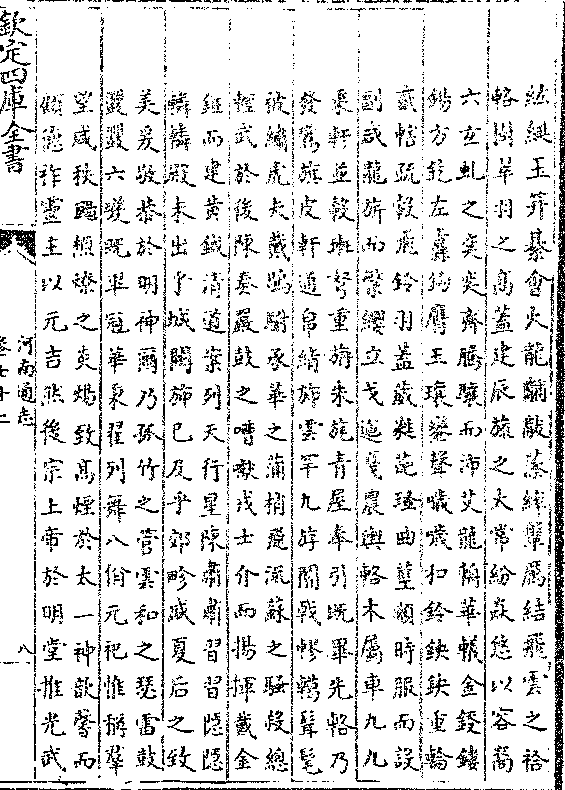 紘綖玉笄綦會火龍黼黻藻繂鞶厲結飛雲之袷
輅樹翠羽之高蓋建辰旒之太常紛焱悠以容裔
六玄虬之奕奕齊騰驤而沛艾龍輈華轙金鋄鏤
鍚方釳左纛鉤膺玉瓖鑾聲噦噦扣鈴鉠鉠重輪
貳轄疏轂飛鈴羽蓋葳蕤葩瑵曲莖順時服而設
副咸龍旂而繁纓立戈迤戛農輿輅木屬車九九
乘軒並轂弩重旃朱旄青屋奉引既畢先輅乃
發鸞旗皮軒通帛綪旆雲罕九斿闟戟轇轕髶髦
被繡虎夫戴鶡駙承華之蒲梢飛流蘇之騷殺總
輕武於後陳奏嚴鼓之嘈囐戎士介而揚揮戴金
鉦而建黄鉞清道案列天行星陳肅肅習習隠隠
轔轔殿未出乎城闕旆已反乎郊畛盛夏后之致
美爰敬恭於明神爾乃孤竹之管雲和之瑟雷鼓
鼝鼝六變既畢冠華秉翟列舞八佾元祀惟稱羣
望咸秩颺槱燎之炎煬致高煙於太一神歆馨而
顧德祚靈主以元吉然後宗上帝於明堂推光武
欽定四庫全書
河南通志
卷七十二
八